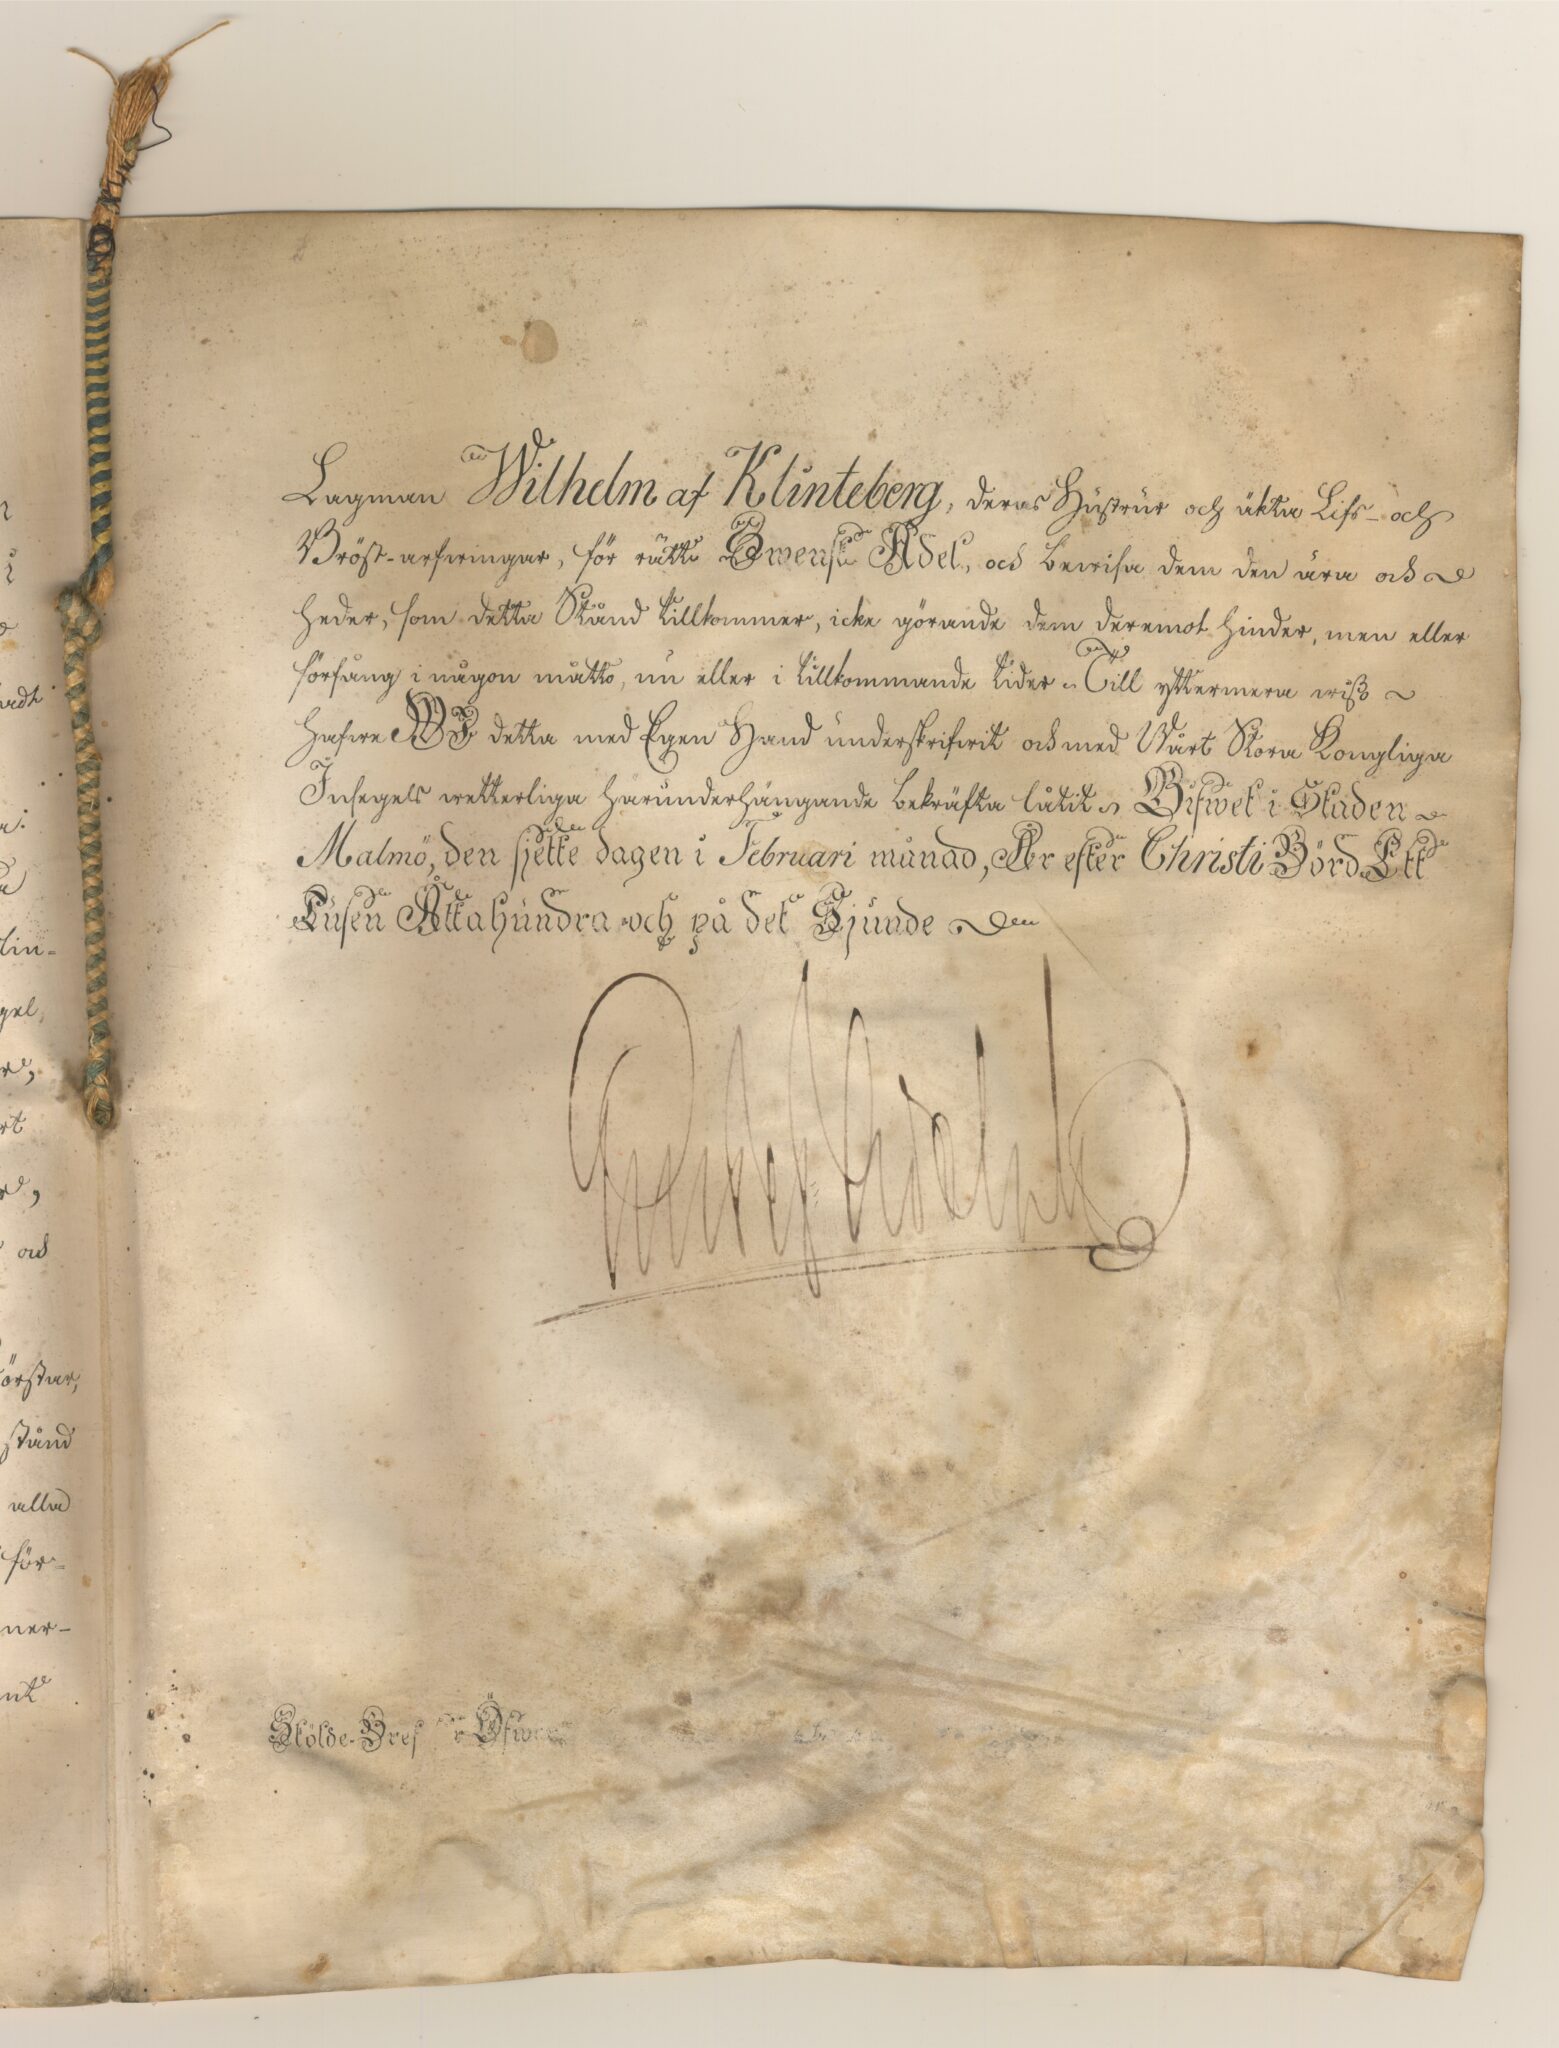 Lagman Wilhelm af Klinteberg, deras Hustrur och äkta Lifs- och
Bröst-arfwingar, för rätt Swensk Adel, och bewisa dem den ära och
heder, som detta Stånd tillkommer, icke görande dem deremot hinder, men eller
förfång i någon måtto, nu eller i tillkommande tider. Till yttermera wiſso
hafwe WI detta med Egen Hand underskrifwit och med Wårt Stora Kongliga
Insegels wetterliga härunderhängande bekräfta låtit. Gifwet i Staden
Malmö, den sjette dagen i Februari månad, År efter Christi Börd Ett
Tusen Åttahundra och på det Sjunde
Gustaf Adolph
Skölde-Bref Öfwer
n
i
ardt
a:
lin-
gel,
rt
och
örstar,
stånd
alla
för-
mer-